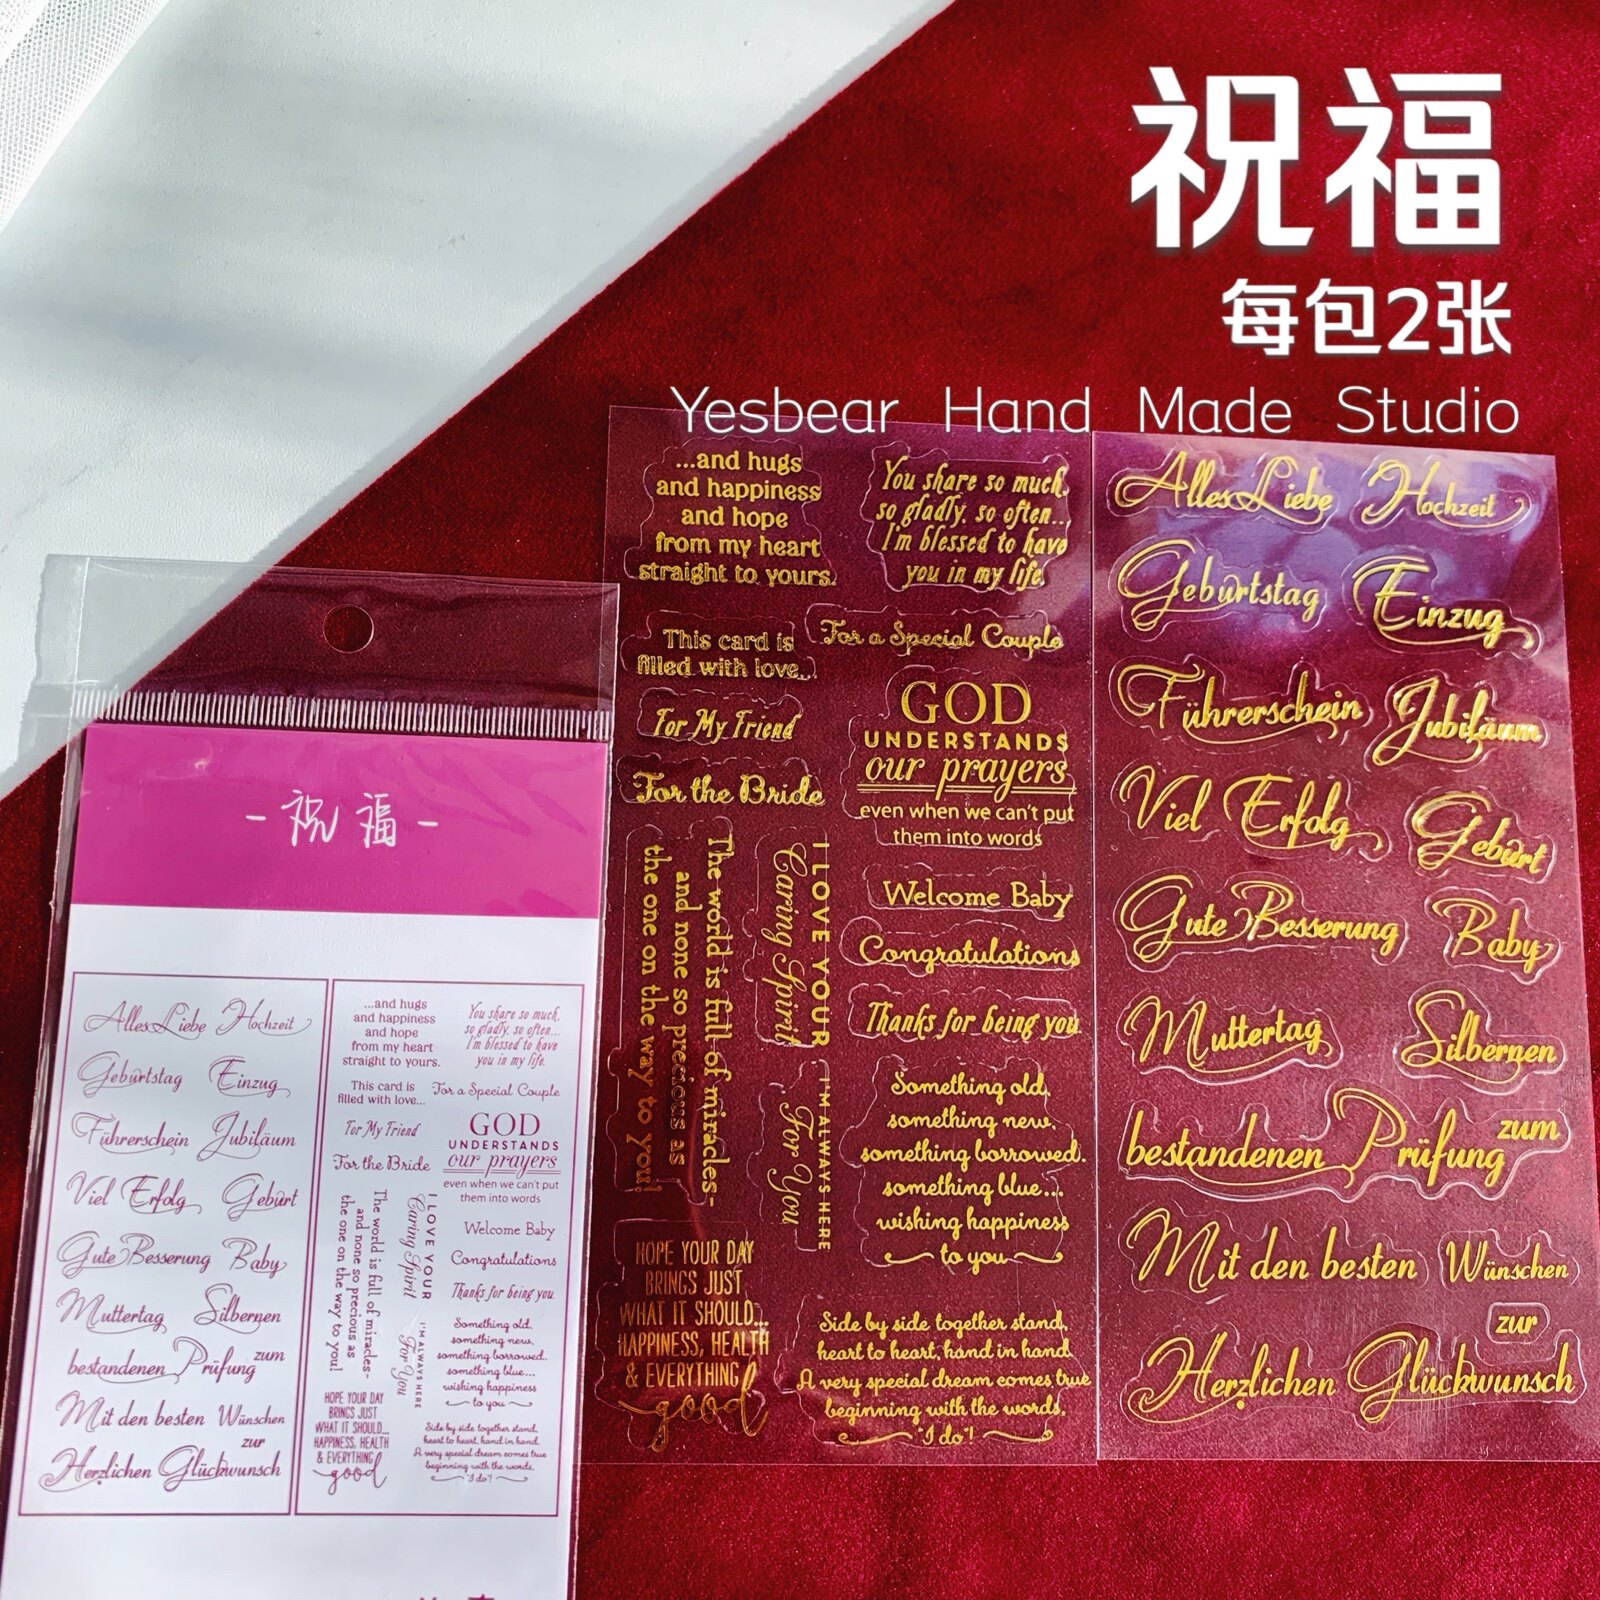 祝福
每包2张
Yesbear Hand Made Studio
...and hugs
and happiness
and hope
from my heart
straight to yours.
You share so much,
so gladly, so often...
I'm blessed to have
you in my life.
This card is
filled with love...
For a Special Couple
For My Friend
For the Bride
GOD
UNDERSTANDS
our prayers
even when we can't put
them into words
The world is full of miracles-
and none so precious as
the one on the way to you!
I LOVE YOUR
Caring Spirit
I'M ALWAYS HERE
For You
Welcome Baby
Congratulations
Thanks for being you
Something old,
something new,
something borrowed,
something blue...
wishing happiness
to you
HOPE YOUR DAY
BRINGS JUST
WHAT IT SHOULD...
HAPPINESS, HEALTH
& EVERYTHING
good
Side by side together stand,
heart to heart, hand in hand.
A very special dream comes true
beginning with the words,
"I do"!
Alles Liebe Hochzeit
Geburtstag Einzug
Führerschein Jubiläum
Viel Erfolg Geburt
Gute Besserung Baby
Muttertag Silbernen
bestandenen Prüfung zum
Mit den besten Wünschen
zur
Herzlichen Glückwunsch
-祝福-
Alles Liebe Hochzeit
Geburtstag Einzug
Führerschein Jubiläum
Viel Erfolg Geburt
Gute Besserung Baby
Muttertag Silbernen
bestandenen Prüfung zum
Mit den besten Wünschen
zur
Herzlichen Glückwunsch
...and hugs
and happiness
and hope
from my heart
straight to yours.
You share so much,
so gladly, so often...
I'm blessed to have
you in my life.
This card is
filled with love...
For a Special Couple
For My Friend
For the Bride
GOD
UNDERSTANDS
our prayers
even when we can't put
them into words
The world is full of miracles-
and none so precious as
the one on the way to you!
I LOVE YOUR
Caring Spirit
I'M ALWAYS HERE
For You
Welcome Baby
Congratulations
Thanks for being you
Something old,
something new,
something borrowed,
something blue...
wishing happiness
to you
HOPE YOUR DAY
BRINGS JUST
WHAT IT SHOULD...
HAPPINESS, HEALTH
& EVERYTHING
good
Side by side together stand,
heart to heart, hand in hand.
A very special dream comes true
beginning with the words,
"I do"!